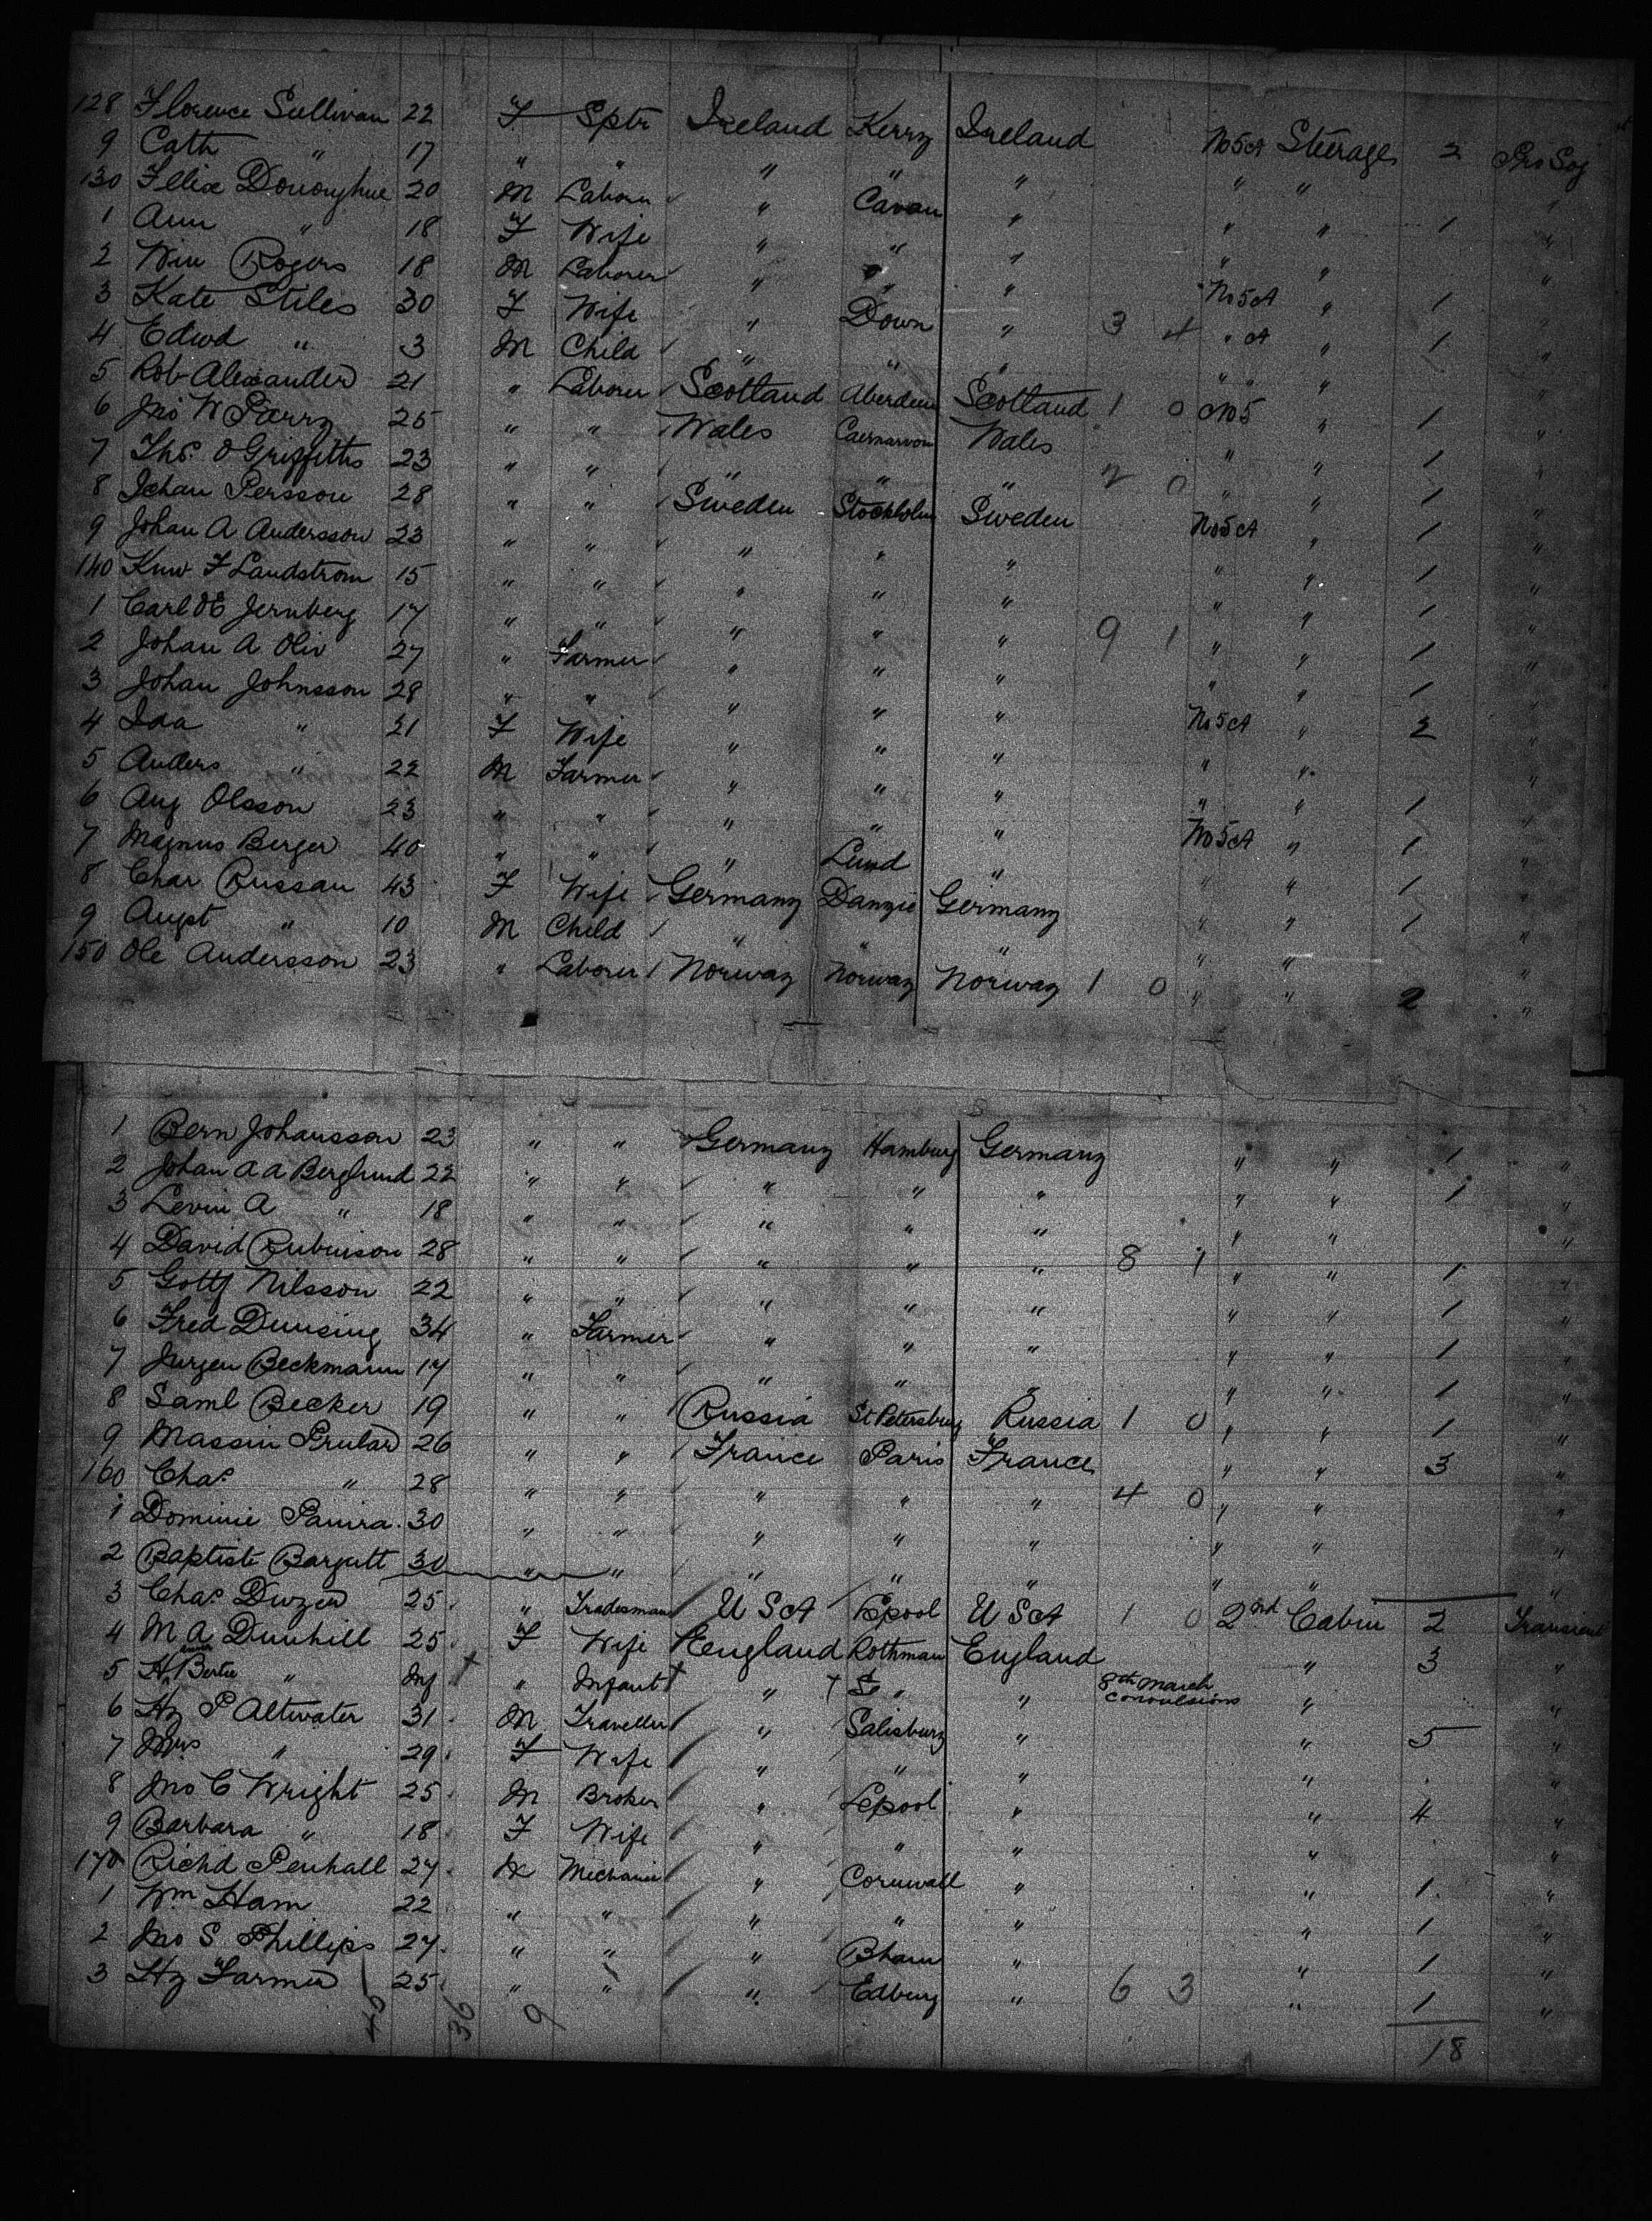 128 Florence Sullivan 22 F Sptr Ireland Kerry Ireland No 5 A Steerage 2 Pro Soj
9 Cath " 17 " " " " " " "
130 Felix Donoughue 20 M Laborer " Cavan " " " 1 "
1 Ann " 18 F Wife " " " " " "
2 Wm Rogers 18 M Laborer " " " No 5 A " 1 "
3 Kate Stiles 30 F Wife " Down " 3 4 " A " 1 "
4 Edwd " 3 M Child " " " " " "
5 Rob Alexander 21 " Laborer Scotland Aberdeen Scotland 1 0 No 5 " 1 "
6 Jno W Parry 25 " " Wales Caernarvon Wales " " 1 "
7 Ths. O Griffiths 23 " " " " " 2 0 " " 1 "
8 Johan Persson 28 " " Sweden Stockholm Sweden No 5 A " 1 "
9 Johan A Andersson 23 " " " " " " " 1 "
140 Knw F Landstrom 15 " " " " " " " 1 "
1 Carl O E Jernberg 17 " " " " " 9 1 " " 1 "
2 Johan A Oliv 27 " Farmer " " " " " 1 "
3 Johan Johnsson 28 " " " " " No 5 A " 2 "
4 Ida " 21 F Wife " " " " " "
5 Anders " 22 M Farmer " " " " " 1 "
6 Aug Olsson 23 " " " " " No 5 A " 1 "
7 Magnus Berger 40 " " " Lund " " " 1 "
8 Char Russau 43 F Wife Germany Danzic Germany " " 1 "
9 Augst " 10 M Child " " " " " "
150 Ole Andersson 23 " Laborer Norway Norway Norway 1 0 " " 2 "
1 Bern Johansson 23 " " Germany Hamburg Germany " " 1 "
2 Johan A A Berglund 22 " " " " " " " 1 "
3 Levin A " 18 " " " " " " " "
4 David Rubinson 28 " " " " " 8 1 " " 1 "
5 Gottf Nilsson 22 " " " " " " " 1 "
6 Fred Dunsing 34 " Farmer " " " " " 1 "
7 Jurgen Beckmann 17 " " " " " " " 1 "
8 Saml Becker 19 " " Russia St Petersburg Russia 1 0 " " 1 "
9 Massin Prulard 26 " " France Paris France " " 3 "
160 Chas " 28 " " " " " 4 0 " " "
1 Dominie Panira 30 " " " " " " " "
2 Baptiste Bargutt 30 " " " " " " " "
3 Chas. 25 " Tradesman U S A L'pool U S A 1 0 2nd Cabin 2 Transient
4 M A Dunhill 25 F Wife England Rothman England " 3 "
5 H. Bertie " Inf " Infant " " " 8th March convulsions " "
6 Hy P Altwater 31 M Traveller " Salisbury " " 5 "
7 Mrs " 29 F Wife " " " " "
8 Jno C Wright 25 M Broker " L'pool " " 4 "
9 Barbara " 18 F Wife " " " " "
170 Richd Penhall 27 M Mechanic " Cornwall " " 1 "
1 Wm Ham 22 " " " " " " 1 "
2 Jno S Phillips 27 " " " Bham " " 1 "
3 Hy Farmer 25 " " " Edburg " 6 3 " 1 "
45 36 9
18